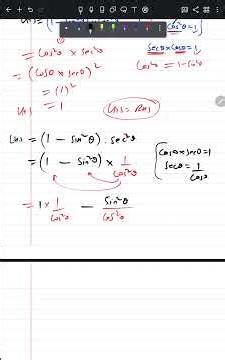 LHS = (1 - sin²θ) · sec²θ
= cos²θ × sec²θ
= (cosθ × secθ)²
= (1)²
LHS = 1
LHS = RHS
cos²θ = 1
secθ × cosθ = 1
cos²θ = 1 - sin²θ
LHS = (1 - sin²θ) · sec²θ
= (1 - sin²θ) × 1/cos²θ
cosθ × secθ = 1
secθ = 1/cosθ
= 1 × 1/cos²θ - sin²θ/cos²θ